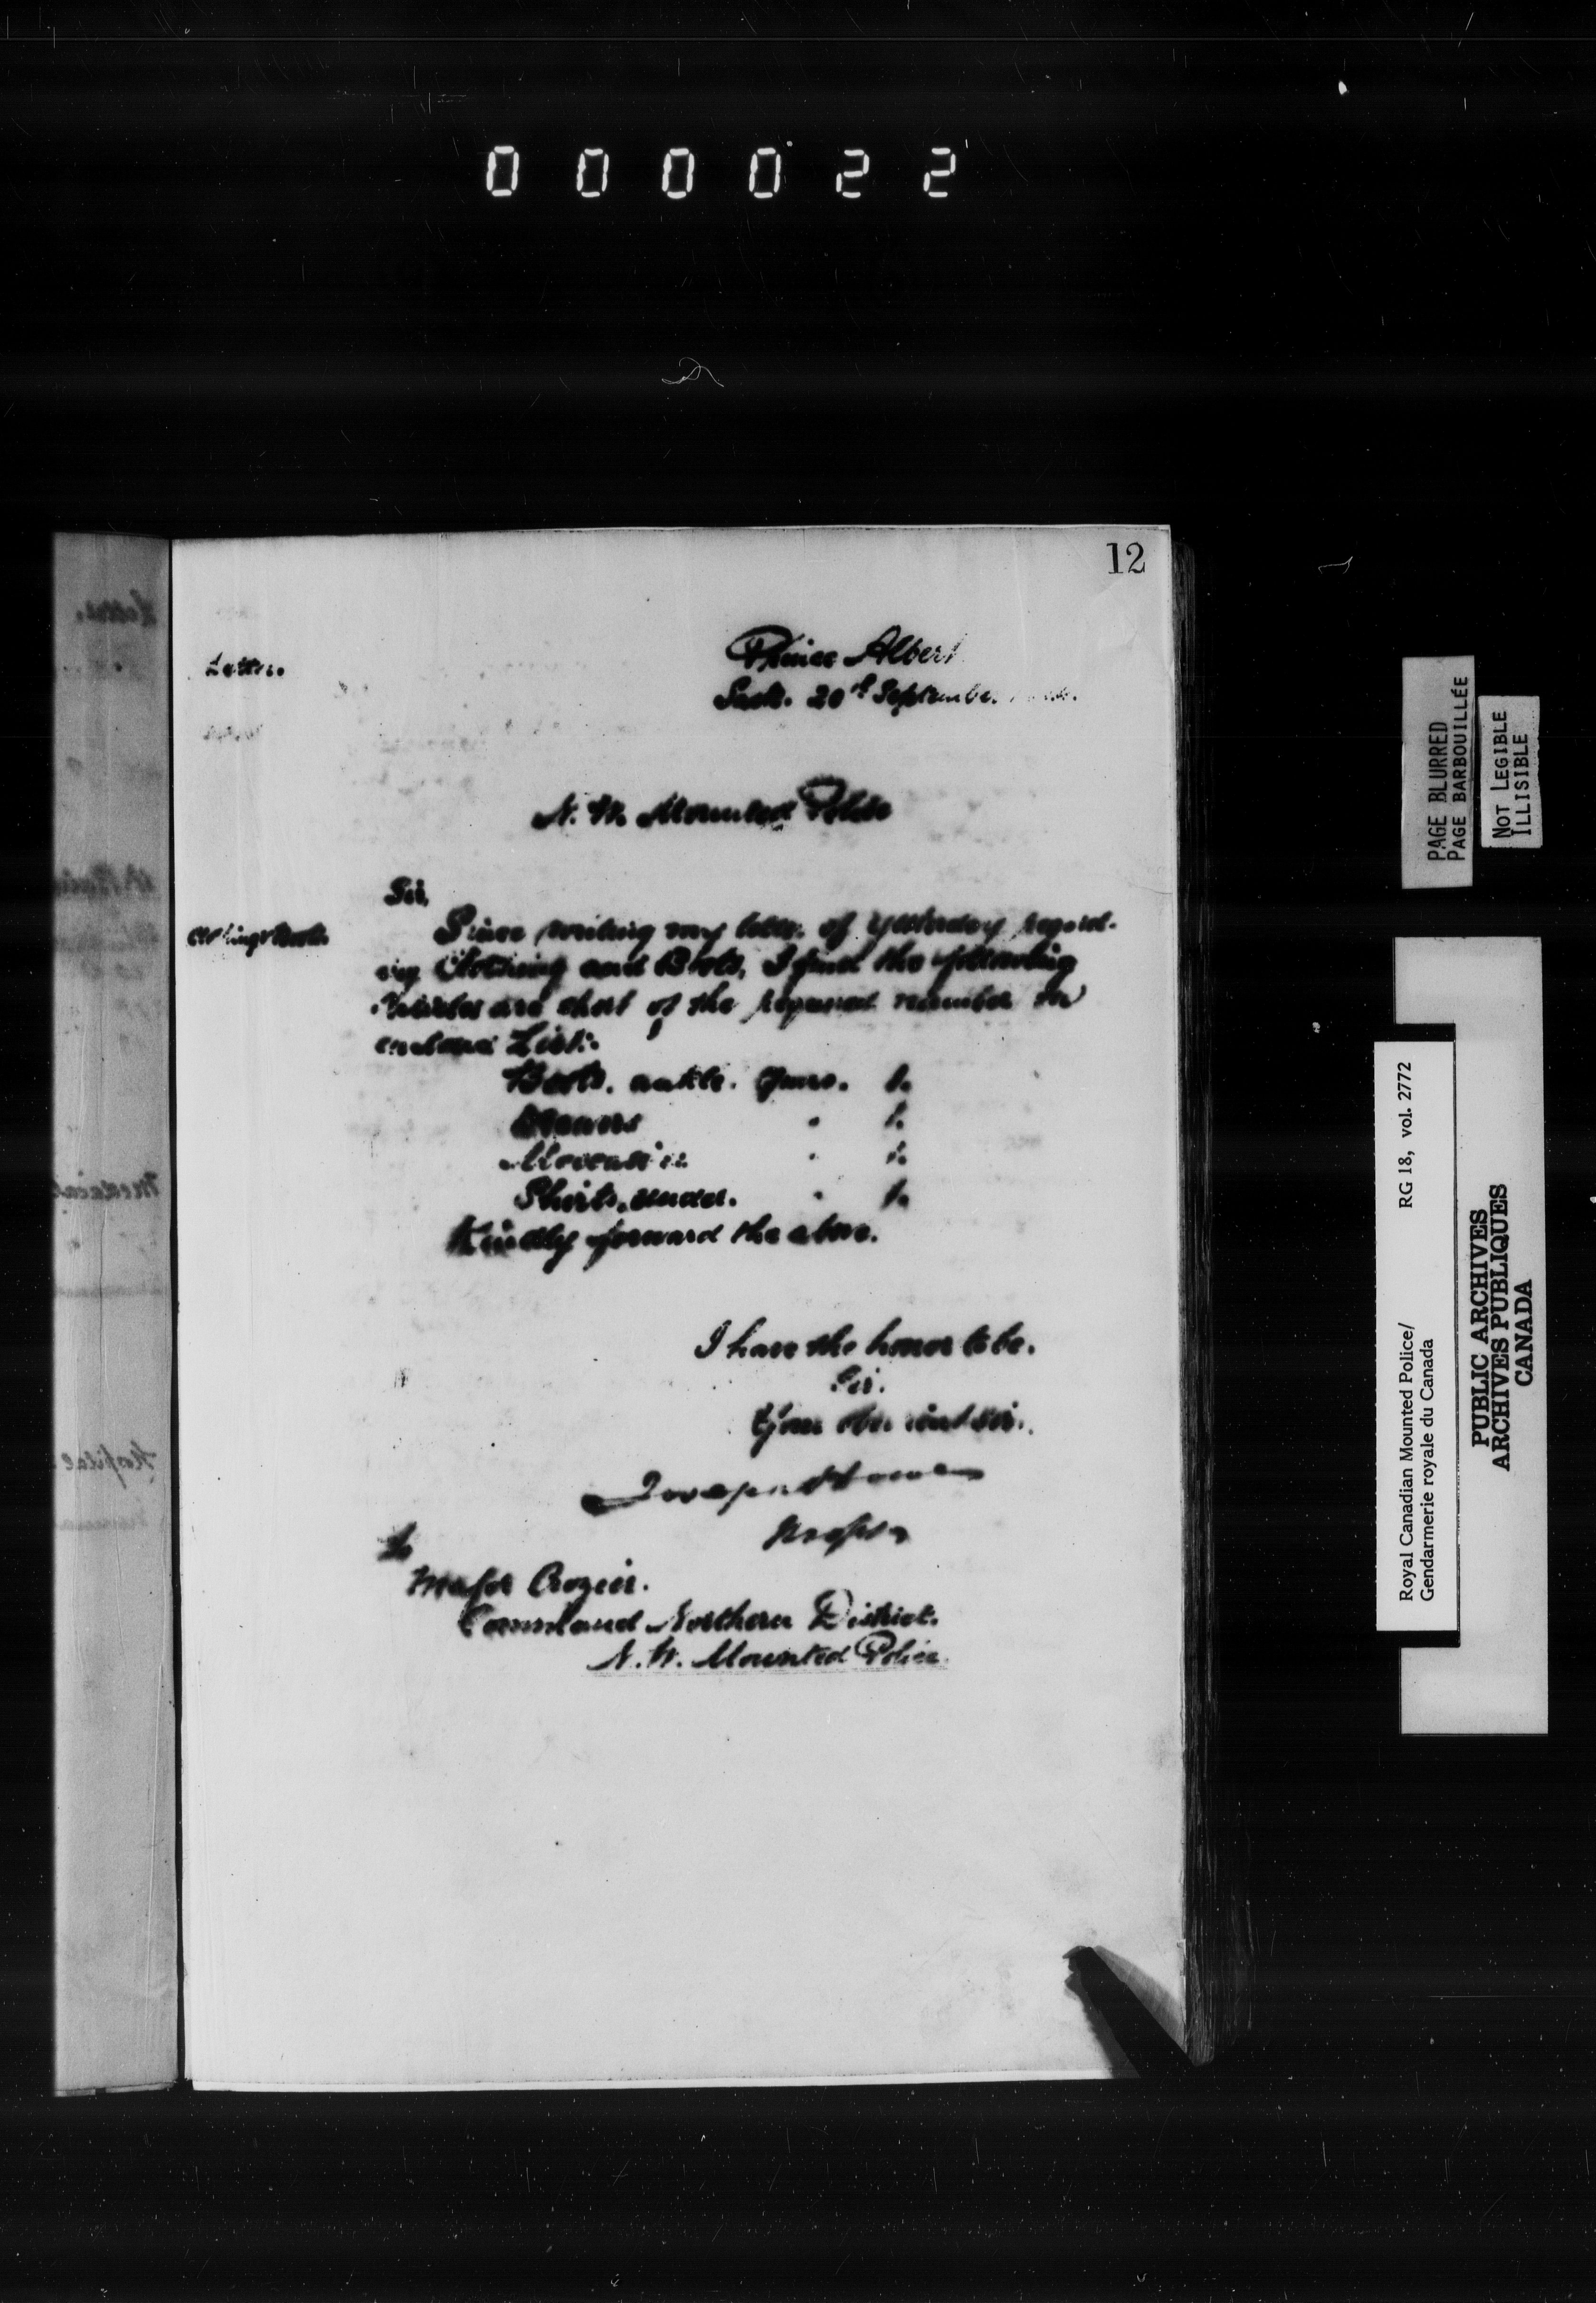 000022
12
Letter.
Prince Albert
Sask. 20th September
N. W. Mounted Police
Sir,
Clothing & Boots.
Since writing my letter of yesterday regard-
ing Clothing and Boots, I find the following
Articles are short of the required number in
List:-
Boots. ankle. Pairs. 1.
" 1.
Moccasins " 1.
Shirts. under. " 1.
Kindly forward the above.
I have the honor to be.
Sir.
Your obedient ser.
Joseph Howe
Inspr
To
Major Crozier.
Command Northern District.
N. W. Mounted Police.
PAGE BLURRED
PAGE BARBOUILLÉE
NOT LEGIBLE
ILLISIBLE
Royal Canadian Mounted Police/
Gendarmerie royale du Canada
RG 18, vol. 2772
PUBLIC ARCHIVES
ARCHIVES PUBLIQUES
CANADA